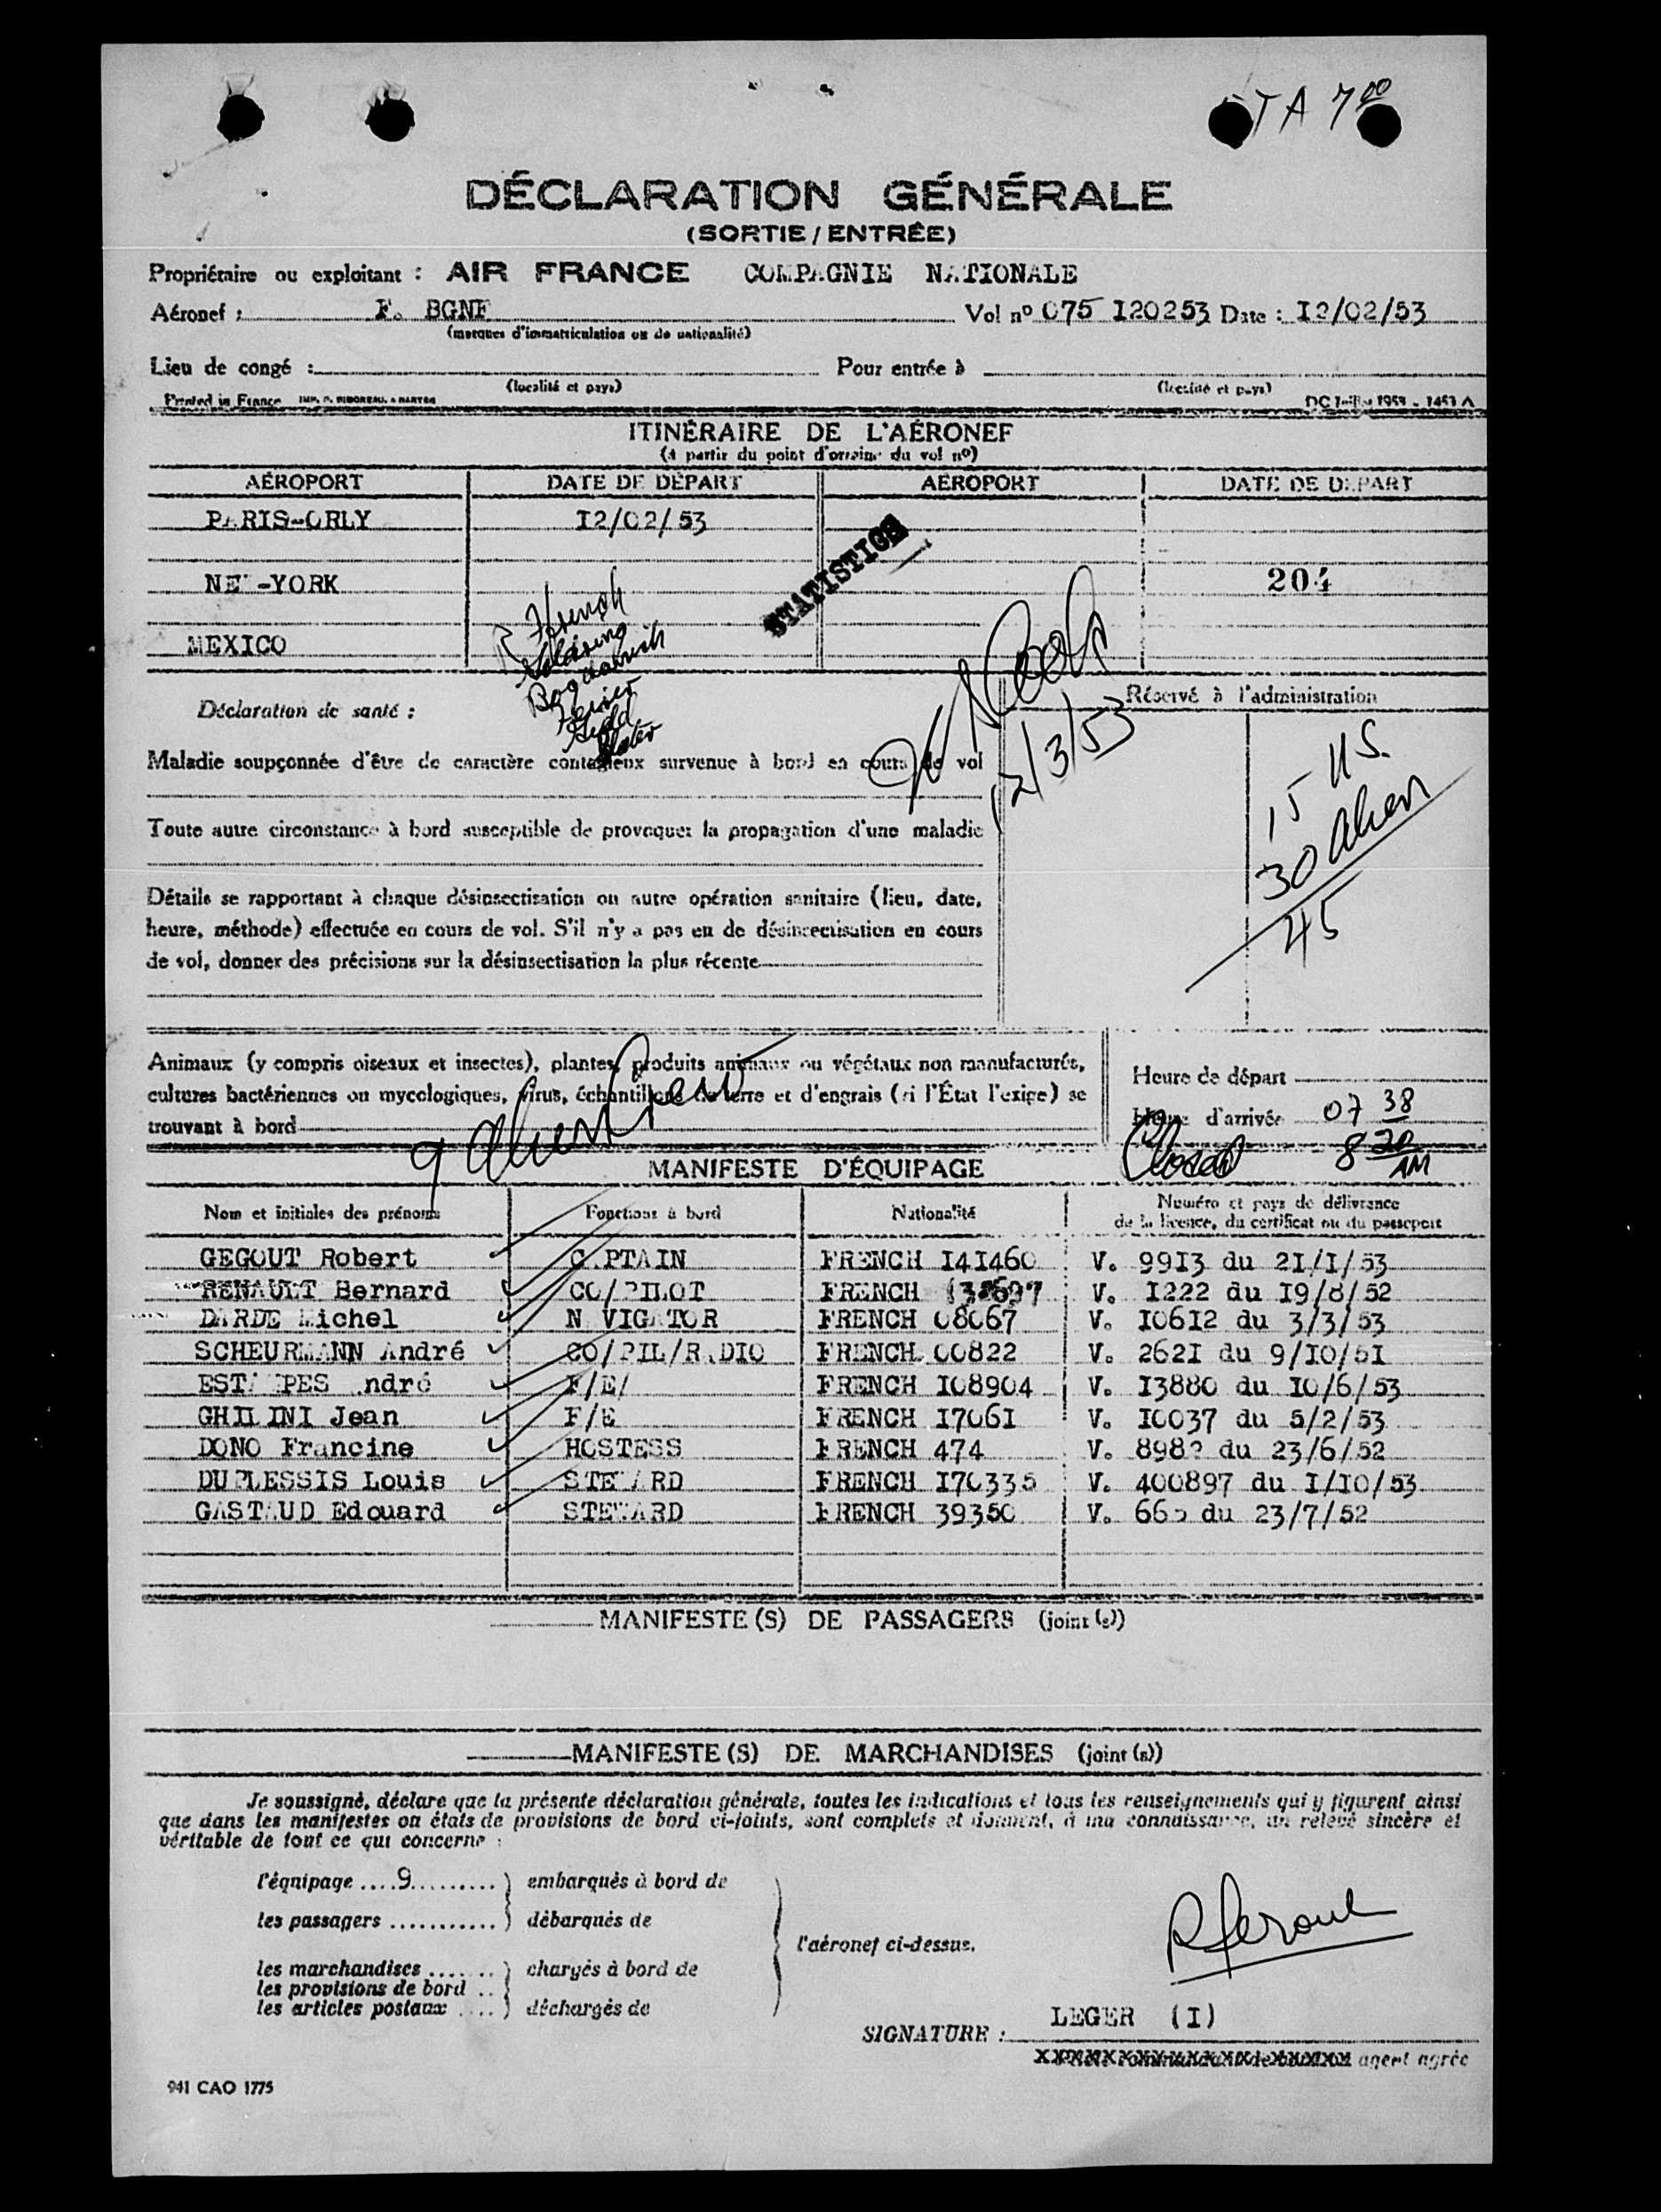 ETA 7 00
DÉCLARATION GÉNÉRALE
(SORTIE / ENTRÉE)
Propriétaire ou exploitant : AIR FRANCE COMPAGNIE NATIONALE
Aéronef : F. BGNF Vol nº 075 I20253 Date : I2/02/53
(marques d'immatriculation ou de nationalité)
Lieu de congé : Pour entrée à
(localité et pays) (localité et pays)
Printed in France
ITINÉRAIRE DE L'AÉRONEF
(à partir du point d'origine du vol nº)
AÉROPORT DATE DE DÉPART AÉROPORT DATE DE DÉPART
PARIS-ORLY I2/02/53
STATISTICS
NEW-YORK 204
MEXICO
French
12/3/53
Réservé à l'administration
Déclaration de santé :
Maladie soupçonnée d'être de caractère contagieux survenue à bord en cours de vol
15 US.
Toute autre circonstance à bord susceptible de provoquer la propagation d'une maladie
30 Alien
45
Détails se rapportant à chaque désinsectisation ou autre opération sanitaire (lieu, date,
heure, méthode) effectuée en cours de vol. S'il n'y a pas eu de désinsectisation en cours
de vol, donner des précisions sur la désinsectisation la plus récente
Animaux (y compris oiseaux et insectes), plantes, produits animaux ou végétaux non manufacturés,
cultures bactériennes ou mycologiques, virus, échantillons de terre et d'engrais (si l'État l'exige) se
trouvant à bord
Heure de départ
Heure d'arrivée 07 38
Closed 8 20 AM
9 Alien Crew
MANIFESTE D'ÉQUIPAGE
Nom et initiales des prénoms Fonctions à bord Nationalité Numéro et pays de délivrance
de la licence, du certificat ou du passeport
GEGOUT Robert CAPTAIN FRENCH I4I460 V. 99I3 du 2I/I/53
RENAULT Bernard CO/PILOT FRENCH V. I222 du I9/8/52
DARDE Michel NAVIGATOR FRENCH 08067 V. I06I2 du 3/3/53
SCHEURMANN André CO/PIL/RADIO FRENCH 00822 V. 262I du 9/I0/5I
ESTAMPES André F/E/ FRENCH I08904 V. I3880 du I0/6/53
GHILINI Jean F/E FRENCH I706I V. I0037 du 5/2/53
DONO Francine HOSTESS FRENCH 474 V. 8982 du 23/6/52
DUPLESSIS Louis STEWARD FRENCH I70335 V. 400897 du I/I0/53
GASTAUD Edouard STEWARD FRENCH 39350 V. 665 du 23/7/52
MANIFESTE (S) DE PASSAGERS (joint (s))
MANIFESTE (S) DE MARCHANDISES (joint (s))
Je soussigné, déclare que la présente déclaration générale, toutes les indications et tous les renseignements qui y figurent ainsi
que dans les manifestes ou états de provisions de bord ci-joints, sont complets et donnent, à ma connaissance, un relevé sincère et
véritable de tout ce qui concerne :
l'équipage .... 9 ......... ) embarqués à bord de
les passagers ........... ) débarqués de
l'aéronef ci-dessus.
les marchandises ....... ) chargés à bord de
les provisions de bord ..
les articles postaux .... ) déchargés de
LEGER (I)
SIGNATURE :
agent agréé
941 CAO 1775